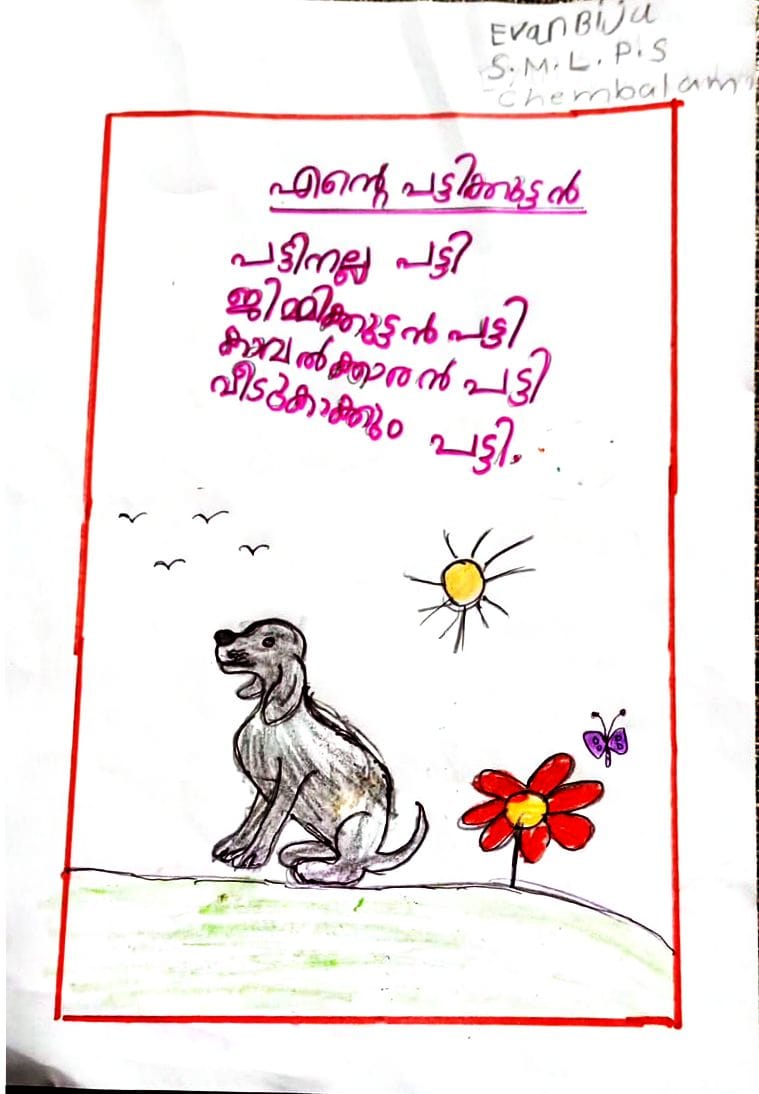 Evan Biju
S.M.L.P.S
Chembalam
എന്റെ പട്ടിക്കുട്ടൻ
പട്ടിനല്ല പട്ടി
ജിമ്മിക്കുട്ടൻ പട്ടി
കാവൽക്കാരൻ പട്ടി
വീടുകാക്കും പട്ടി.